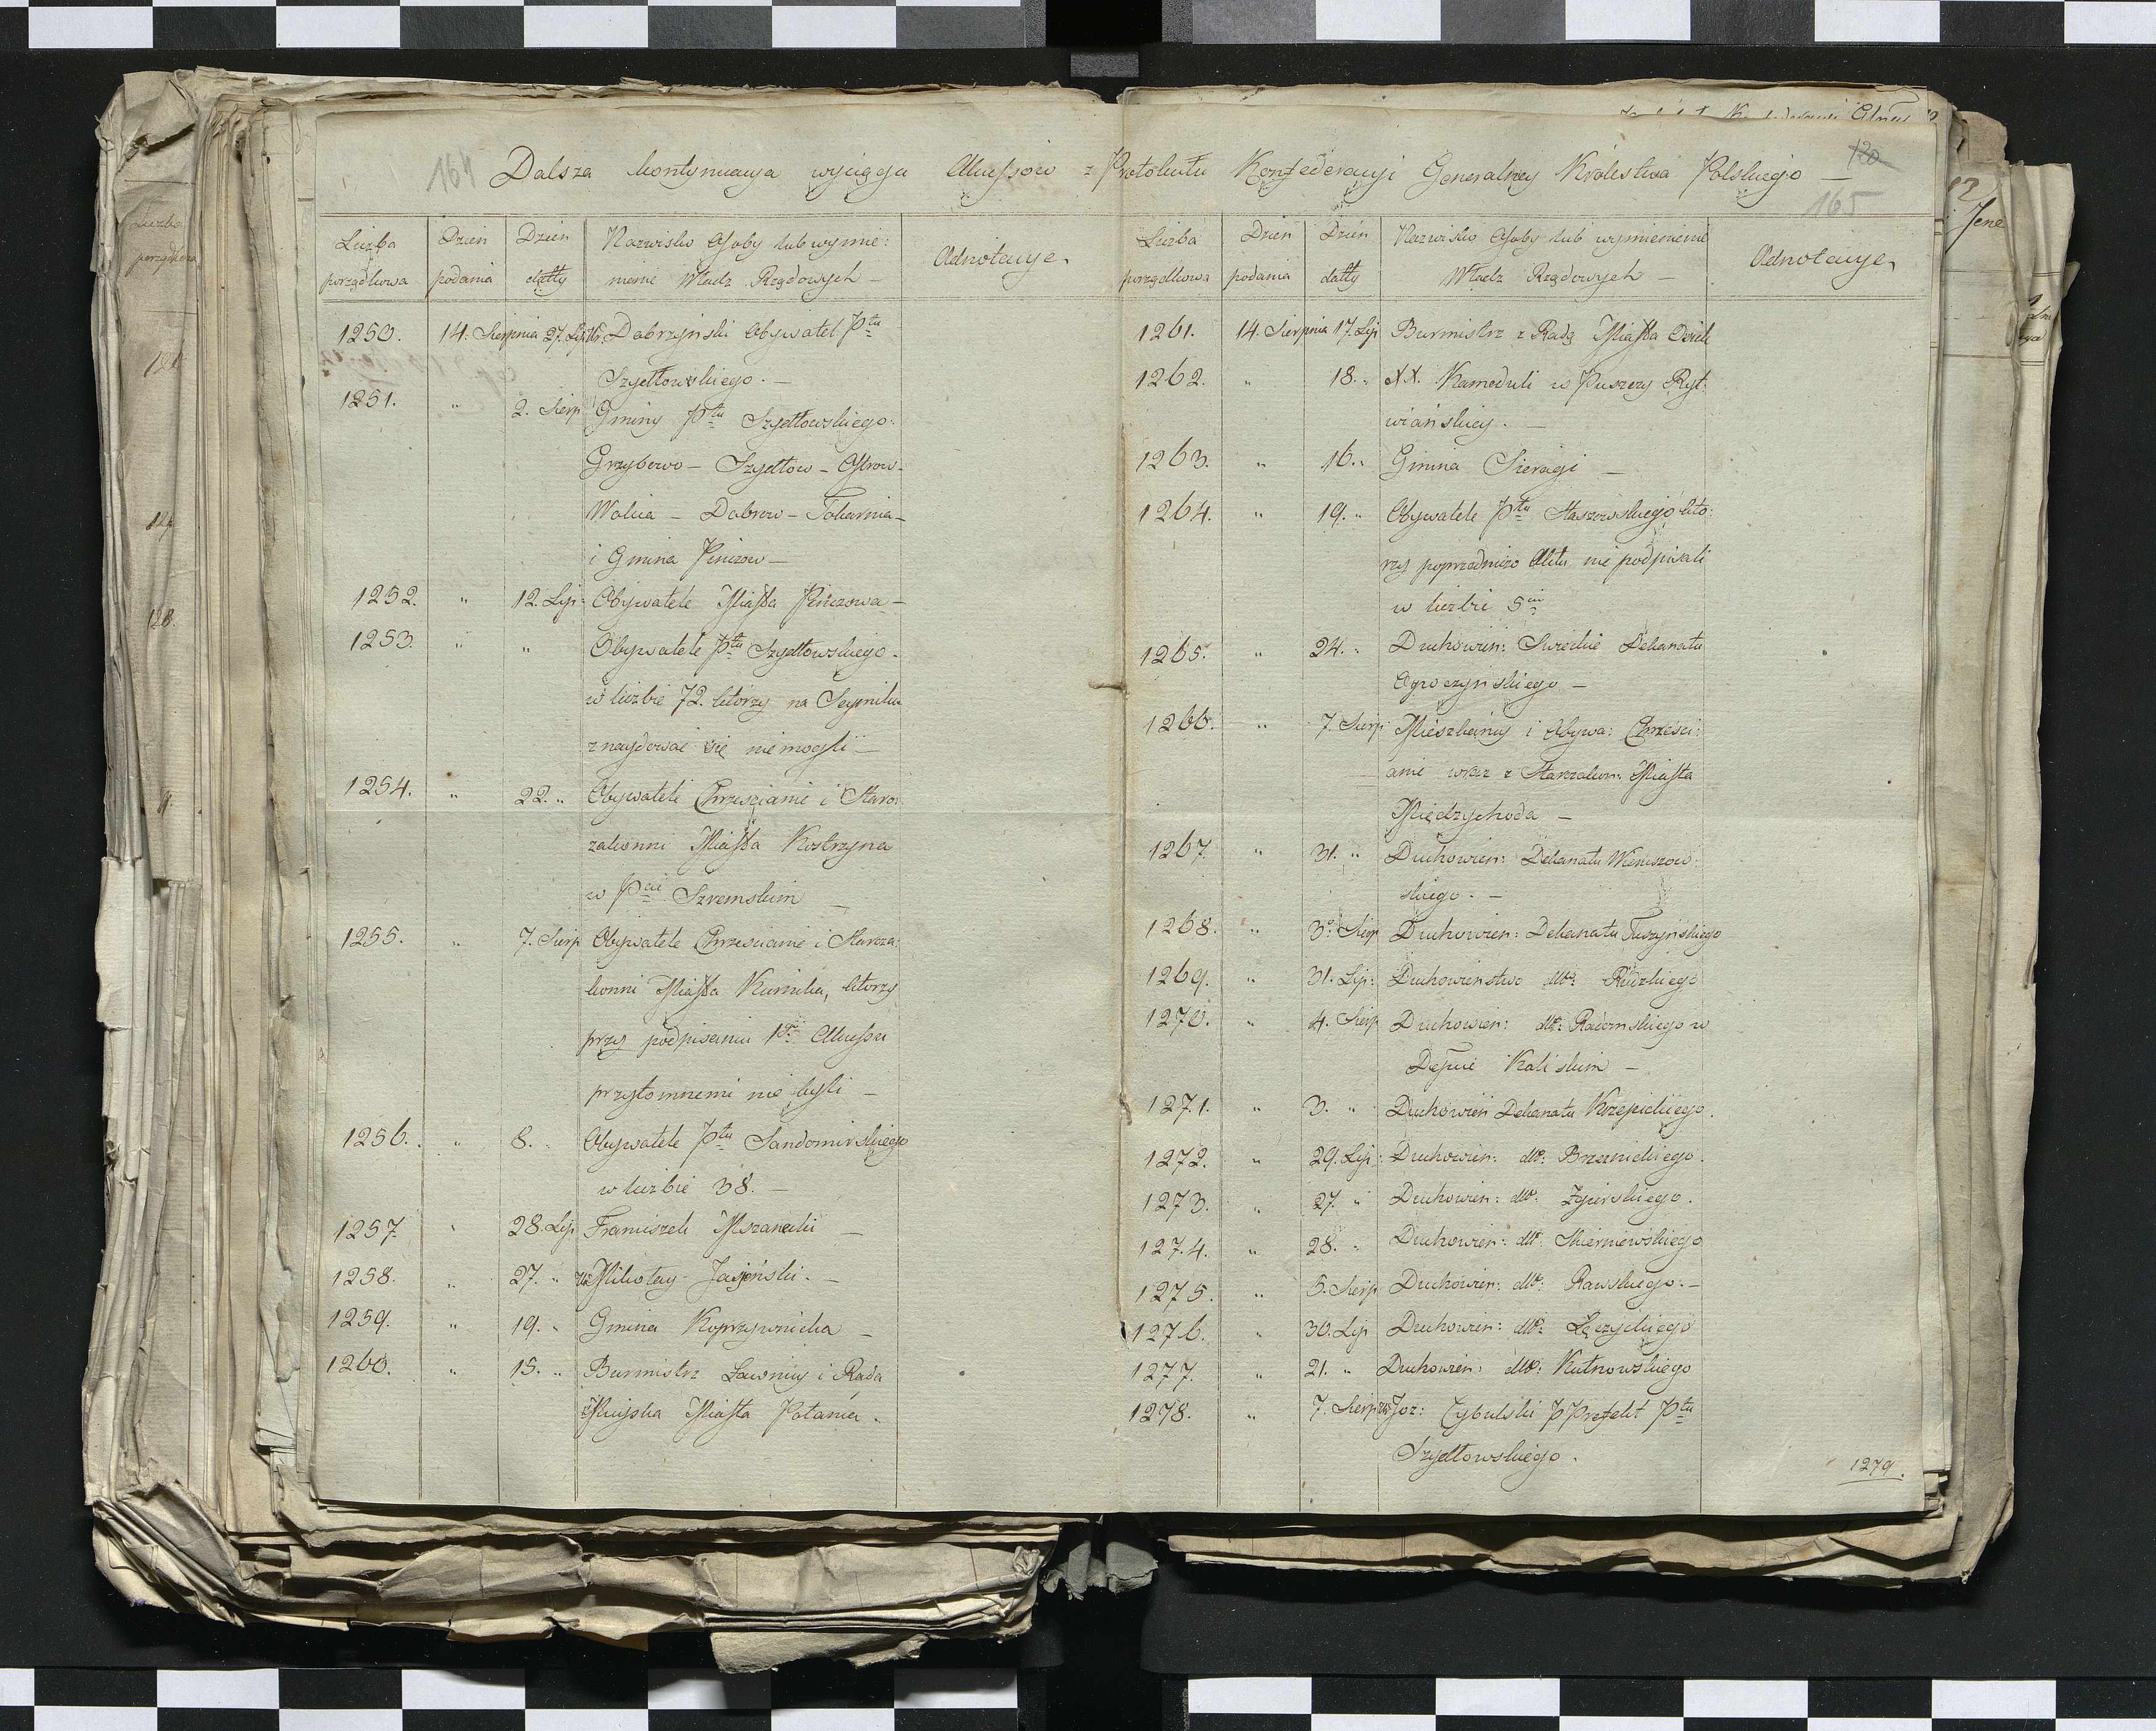 164 Dalsza kontynuacya wyciągu Akcessow z Protokułu Konfederacyi Generalney Krolestwa Polskiego —
120
165
Liczba porządkowa
Dzień podania
Dzień datty
Nazwisko Osoby lub wymie:
nienie Wladz Rządowych —
Adnotacye
1250. 14. Sierpnia 27. Lip: Ur. Dobrzyński Obywatel Ptu
Szydłowskiego. —
1251. " 2. Sierp Gminy Ptu Szydłowskiego:
Grzybowo — Szydłow — Ostrow —
Wolica — Dobrow — Tokarnia —
i Gmina Pinczow —
1252. " 12. Lip: Obywatele Miasta Pińczowa —
1253. " " Obywatele Ptu Szydłowskiego —
w liczbie 72. ktorzy na Seymiku
znaydować się niemogli —
1254. " 22. " Obywatele Chrzescianie i Staro:
zakonni Miasta Kostrzyna
w Pcie Szremskim —
1255. " 7. Sierp Obywatele Chrzescianie i Staroza:
konni Miasta Kurnika, ktorzy
przy podpisaniu 1go Akcessu
przytomnemi nie byli —
1256. " 8. " Obywatele Ptu Sandomirskiego
w liczbie 38. —
1257. " 28. Lip Franciszek Mszanecki —
1258. " 27. " Ur Mikołay Jasieński. —
1259. " 19. " Gmina Koprzywnicka —
1260. " 15. " Burmistrz Ławnicy i Rada
Mieyska Miasta Połańca.
Liczba porządkowa
Dzień podania
Dzień datty
Nazwisko Osoby lub wymienienie
Wladz Rządowych —
Adnotacye
1261. 14. Sierpnia 17. Lip Burmistrz z Radą Miasta Osiek
1262. " 18. " XX. Kameduli w Puszczy Ryt:
wiańskiey. —
1263. " 16. " Gmina Sieragi —
1264. " 19. " Obywatele Ptu Staszowskiego kto:
rzy poprzedniczo Aktu nie podpisali
w liczbie 5ciu
1265. " 24. " Duchowień: Swieckie Dekanatu
Opoczyńskiego —
1266. " 7. Sierp Mieszkańcy i Obywa: Chrześci:
anie wraz z Starozakon: Miasta
Międzychoda —
1267. " 31. " Duchowień: Dekanatu Wieruszow:
skiego. —
1268. " 3. Sierp Duchowień: Dekanatu Tuszyńskiego
1269. " 31. Lip: Duchowieństwo dtto: Rudzkiego
1270. " 4. Sierp Duchowień: dtto: Radomskiego w
Depcie Kaliskim —
1271. " 3. " Duchowień Dekanatu Krzepickiego.
1272. " 29. Lip: Duchowień: dtto: Brzeznickiego.
1273. " 27. " Duchowień: dtto: Zgierskiego.
1274. " 28. " Duchowień: dtto: Skierniewskiego
1275. " 5. Sierp Duchowień: dtto: Rawskiego. —
1276. " 30. Lip Duchowień: dtto: Łęczyckiego
1277. " 21. " Duchowień: dtto: Kutnowskiego
1278. " 7. Sierp Ur Joz: Cybulski PPrefekt Ptu
Szydłowskiego.
1279.